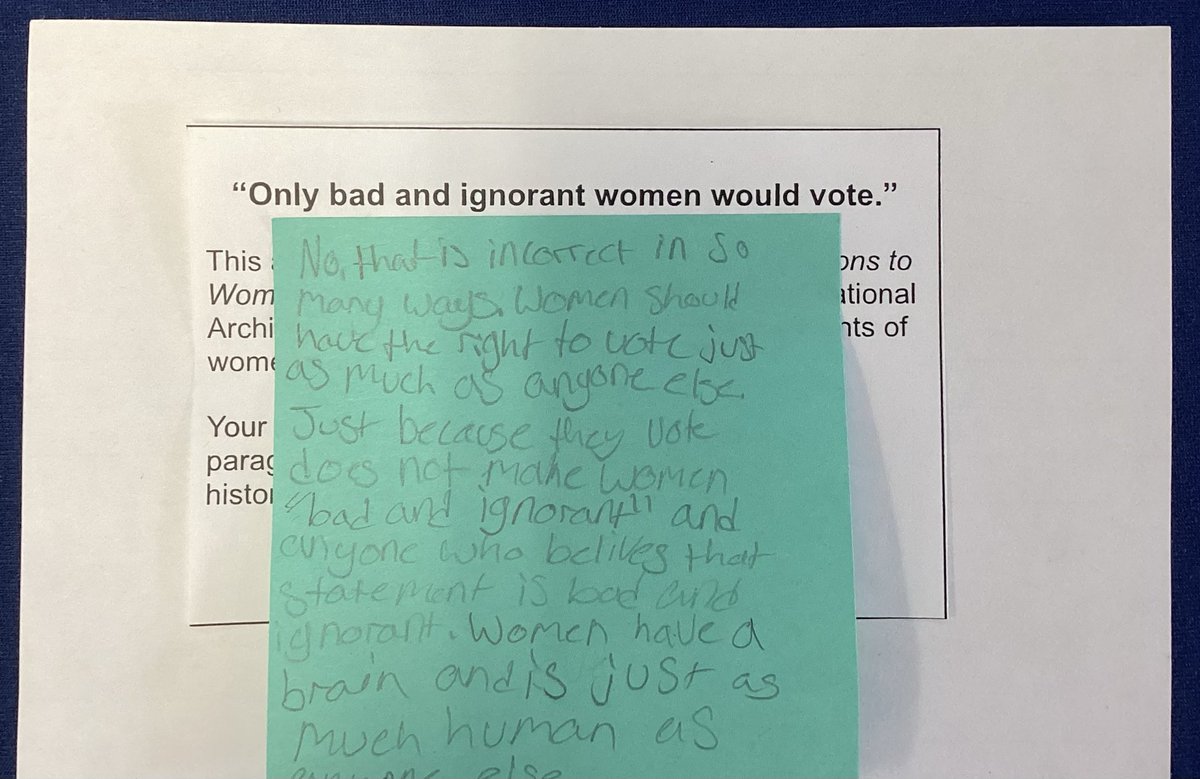 “Only bad and ignorant women would vote.”
This ons to
Wom ational
Archi nts of
wome
Your
parag
histor
No, that is incorrect in so
many ways. Women should
have the right to vote just
as much as anyone else.
Just because they vote
does not make women
"bad and ignorant" and
who belives that
statement is bad and
ignorant. Women have a
brain and is just as
much human as
anyone else